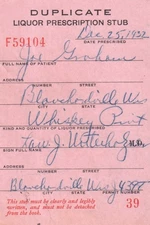 DUPLICATE
LIQUOR PRESCRIPTION STUB
F59104
Dec 25, 1932
DATE PRESCRIBED
Joe
FULL NAME OF PATIENT
ADDRESS
NUMBER STREET
Blanchardville Wis
CITY STATE
Whiskey Pint
KIND AND QUANTITY OF LIQUOR PRESCRIBED
M.D.
SIGN FULL NAME
ADDRESS
NUMBER STREET
Blanchardville Wis
CITY STATE PERMIT NUMBER
This stub must be clearly and legibly
written, and must not be detached
from the book.
39